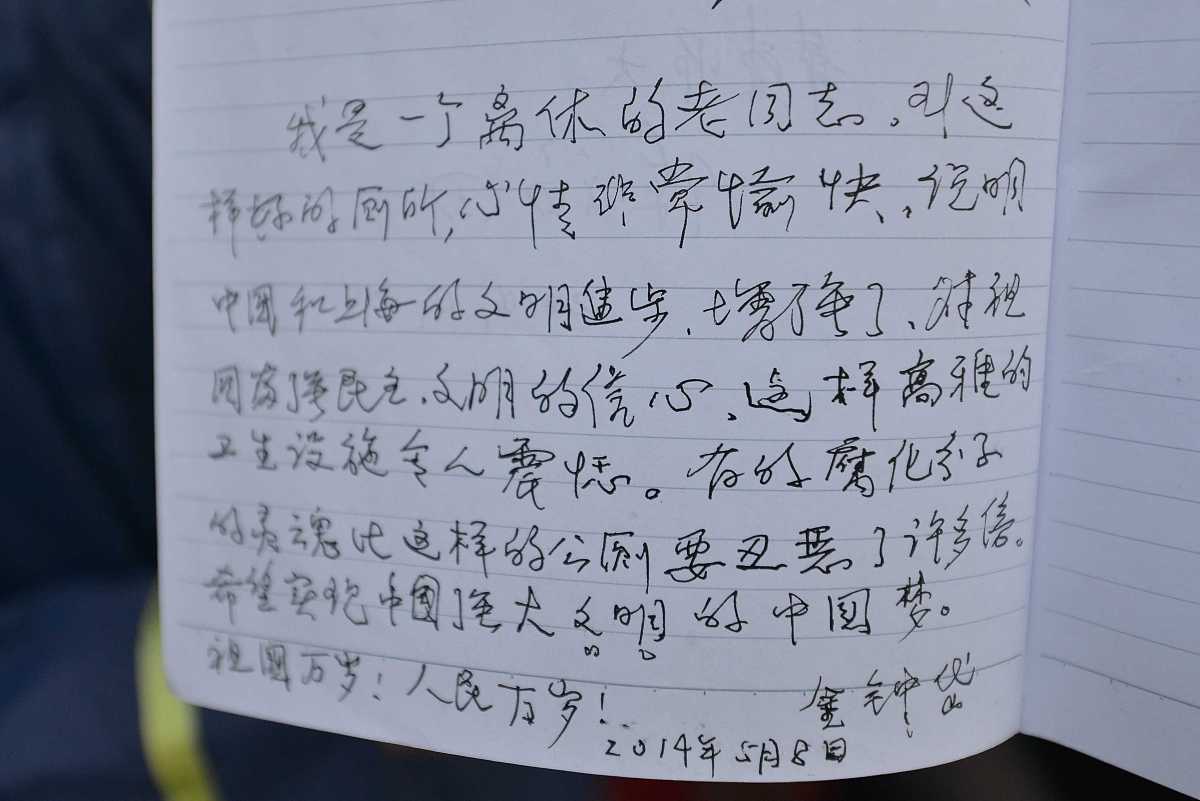 我是一个离休的老同志,对这
样好的厕所,心情非常愉快,说明
中国和上海的文明进步,增强了,对祖
国富强民主、文明的信心,这样高雅的
卫生设施令人震惊。有的腐化分子
的灵魂比这样的公厕要丑恶了许多倍。
希望实现中国强大文明的中国梦。
祖国万岁!人民万岁!
金钟
2014年5月8日